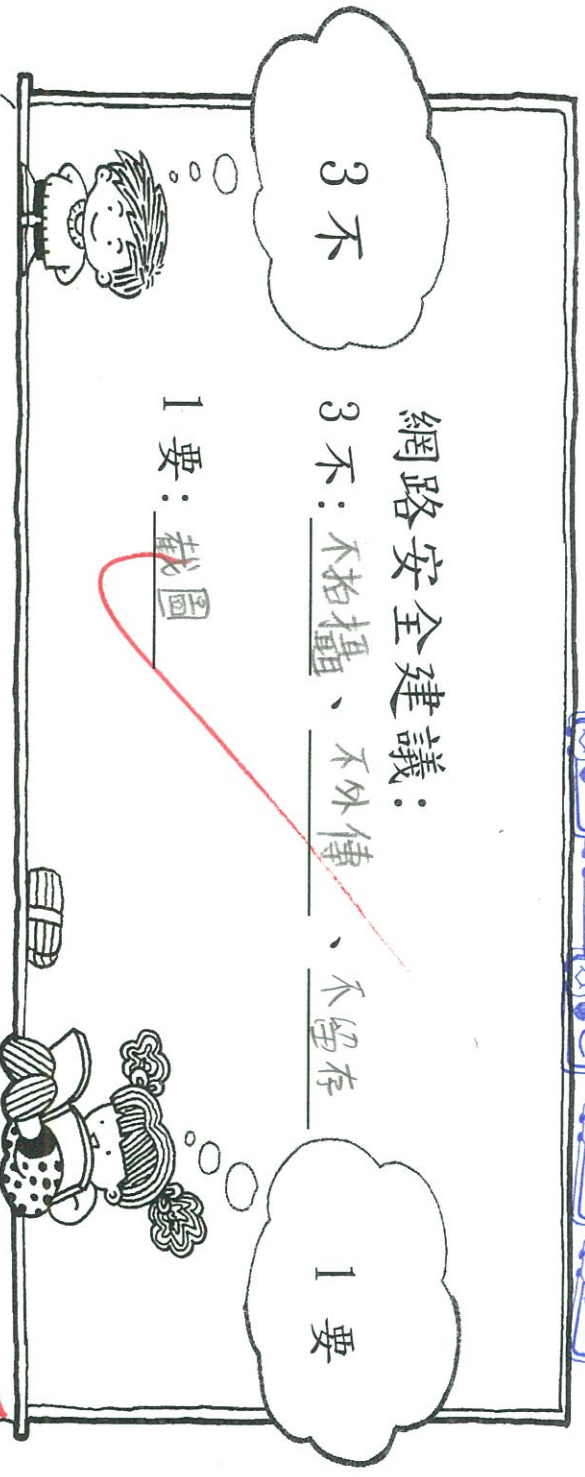 3不
網路安全建議：
3不：不拍攝、不外傳、不留存
1要：截圖
1要